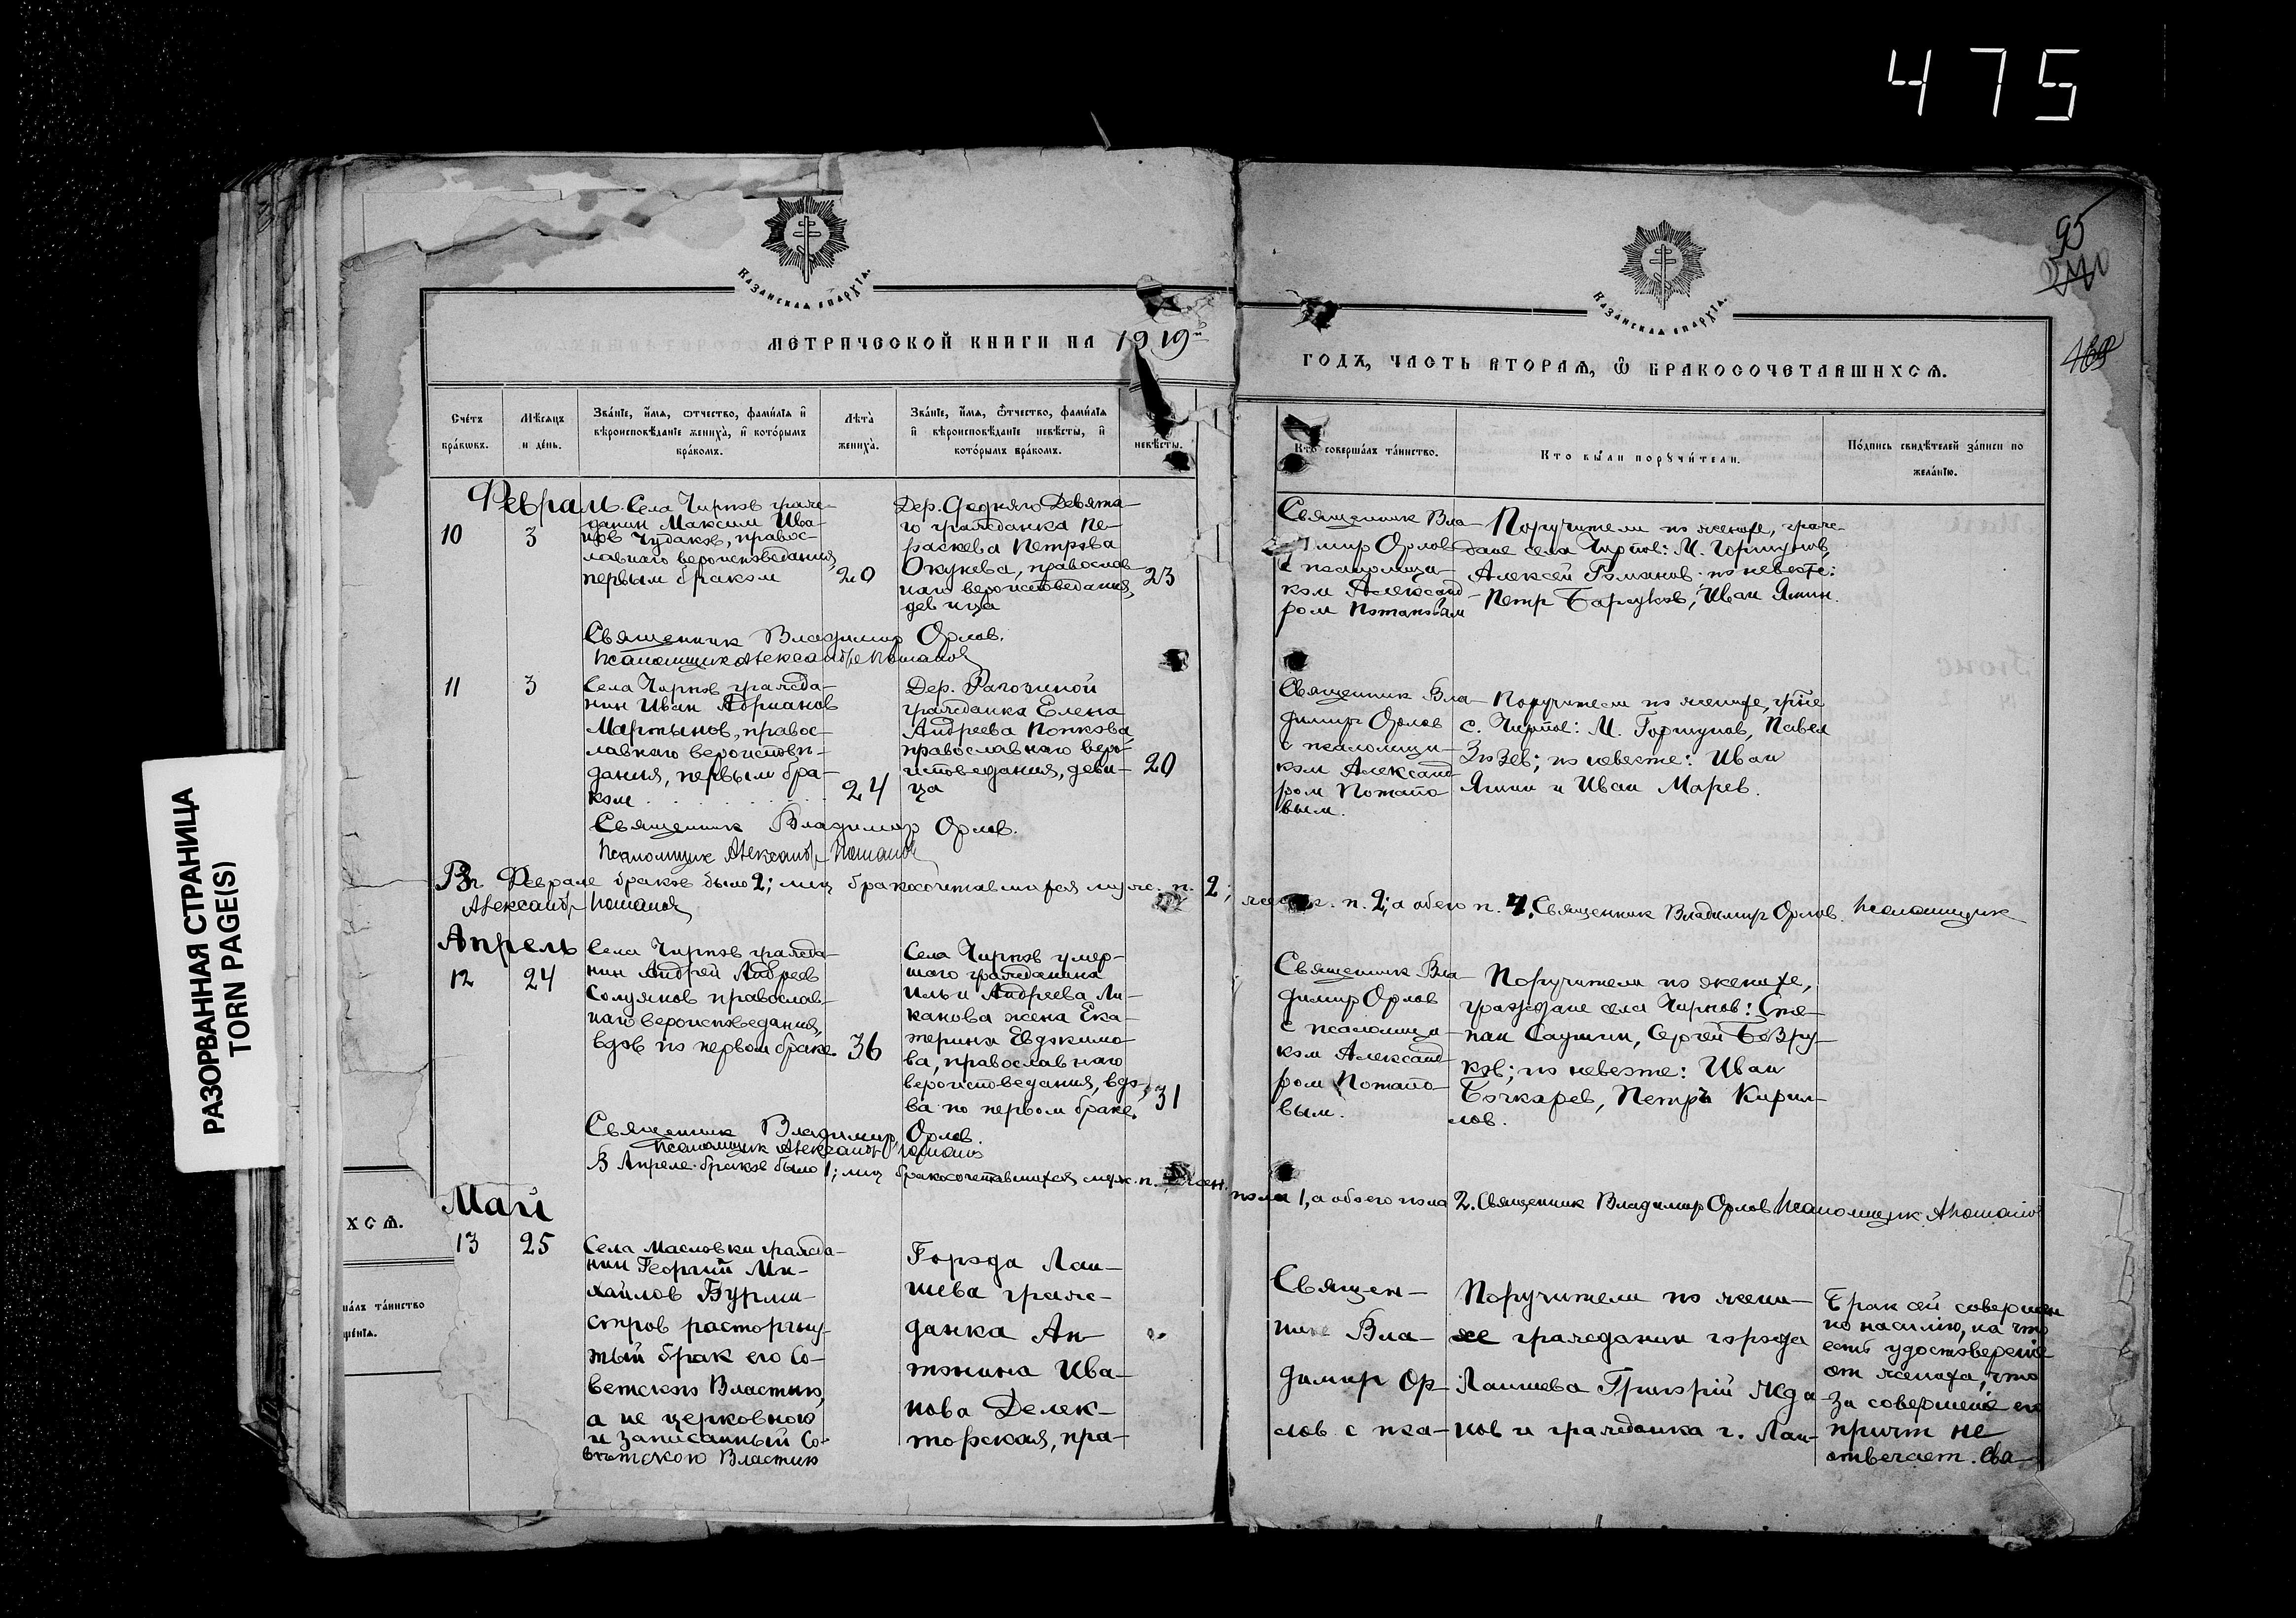 475
95
469
РАЗОРВАННАЯ СТРАНИЦА
TORN PAGE(S)
КАЗАНСКАѦ ЕПАРХІѦ.
МЕТРИЧЕСКОЙ КНИГИ НА 1919й
Счетъ браковъ.
Мѣсяцъ и день.
Званіе, имя, отчество, фамилія и вѣроисповѣданіе жениха, и которымъ бракомъ.
Лѣта жениха.
Званіе, имя, отчество, фамилія и вѣроисповѣданіе невѣсты, и которымъ бракомъ.
невѣсты.
КАЗАНСКАѦ ЕПАРХІѦ.
ГОДЪ, ЧАСТЬ ВТОРАѦ, Ѿ БРАКОСОЧЕТАВШИХСѦ.
Кто совершалъ таинство.
Кто были поручители.
Подпись свидѣтелей записи по желанію.
Феврал
10
3
Села Чирпов граж-
данин Максим Ива-
нов Чудаков, правос-
лавнаго вероисповедания,
первым браком
20
Дер. Средняго Девята-
го гражданка Пе-
раскева Петрова
Окунева, православ-
наго вероисповедания,
девица
23
Священник Вла-
димир Орлов
с псаломщи-
ком Александ-
ром Потаповым
Поручители по женихе, граж-
дане села Чирпов: М. Горшунов,
Алексей Романов по невесте:
Петр Барчуков, Иван Янин.
Священник Владимир Орлов.
Псаломщик Александр Потапов
11
3
Села Чирпов гражда-
нин Иван Адрианов
Мартынов, правос-
лавнаго вероиспове-
дания, первым бра-
ком
24
Дер. Рагозиной
гражданка Елена
Андреева Попкова,
православнаго веро-
исповедания, деви-
ца
20
Священник Вла-
димир Орлов
с псаломщи-
ком Александ-
ром Потапо-
вым.
Поручители по женихе, гр-не
с. Чирпов: М. Горшунов, Павел
Зюзев; по невесте: Иван
Янин и Иван Марев.
Священник Владимир Орлов.
Псаломщик Александр Потапов
В Феврале браков было 2; лиц бракосочетавшихся муж. п. 2; женск. п. 2; а обего п. 4. Священник Владимир Орлов. Псаломщик
Александр Потапов
Апрель
12
24
Села Чирпов гражда-
нин Андрей Андреев
Солуянов православ-
наго вероисповедания,
вдов по первом браке.
36
Села Чирпов умер-
шаго гражданина
Ильи Андреева Ли-
канова жена Ека-
терина Евдокимо-
ва, православнаго
вероисповедания, вдо-
ва по первом браке.
31
Священник Вла-
димир Орлов
с псаломщи-
ком Александ-
ром Потапо-
вым.
Поручители по женихе,
граждане села Чирпов: Сте-
пан Саушин, Сергей Безру-
ков; по невесте: Иван
Бочкарев, Петръ Кирил-
лов.
Священник Владимир Орлов.
Псаломщик Александр Потапов
В Апреле браков было 1; лиц бракосочетавшихся муж. п. 1 женс. пола 1, а обоего пола 2. Священник Владимир Орлов Псаломщик А Потапов
Май
ХСѦ.
13
25
Села Масловки гражда-
нин Георгий Ми-
хайлов Бурми-
стров расторгну-
тый брак его Со-
ветскою Властию,
а не церковною
и записанный Со-
ветскою Властию
Города Лаи-
шева граж-
данка Ан-
тонина Ива-
нова Делек-
торская, пра-
Священ-
ник Вла-
димир Ор-
лов с пса-
Поручители по жени-
хе гражданин города
Лаишева Григорий Жда-
нов и гражданка г. Лаи-
Брак сей совершен
по насилию, на что
есть удостоверение
от жениха, что
за совершение его
причт не
отвечает. Свя-